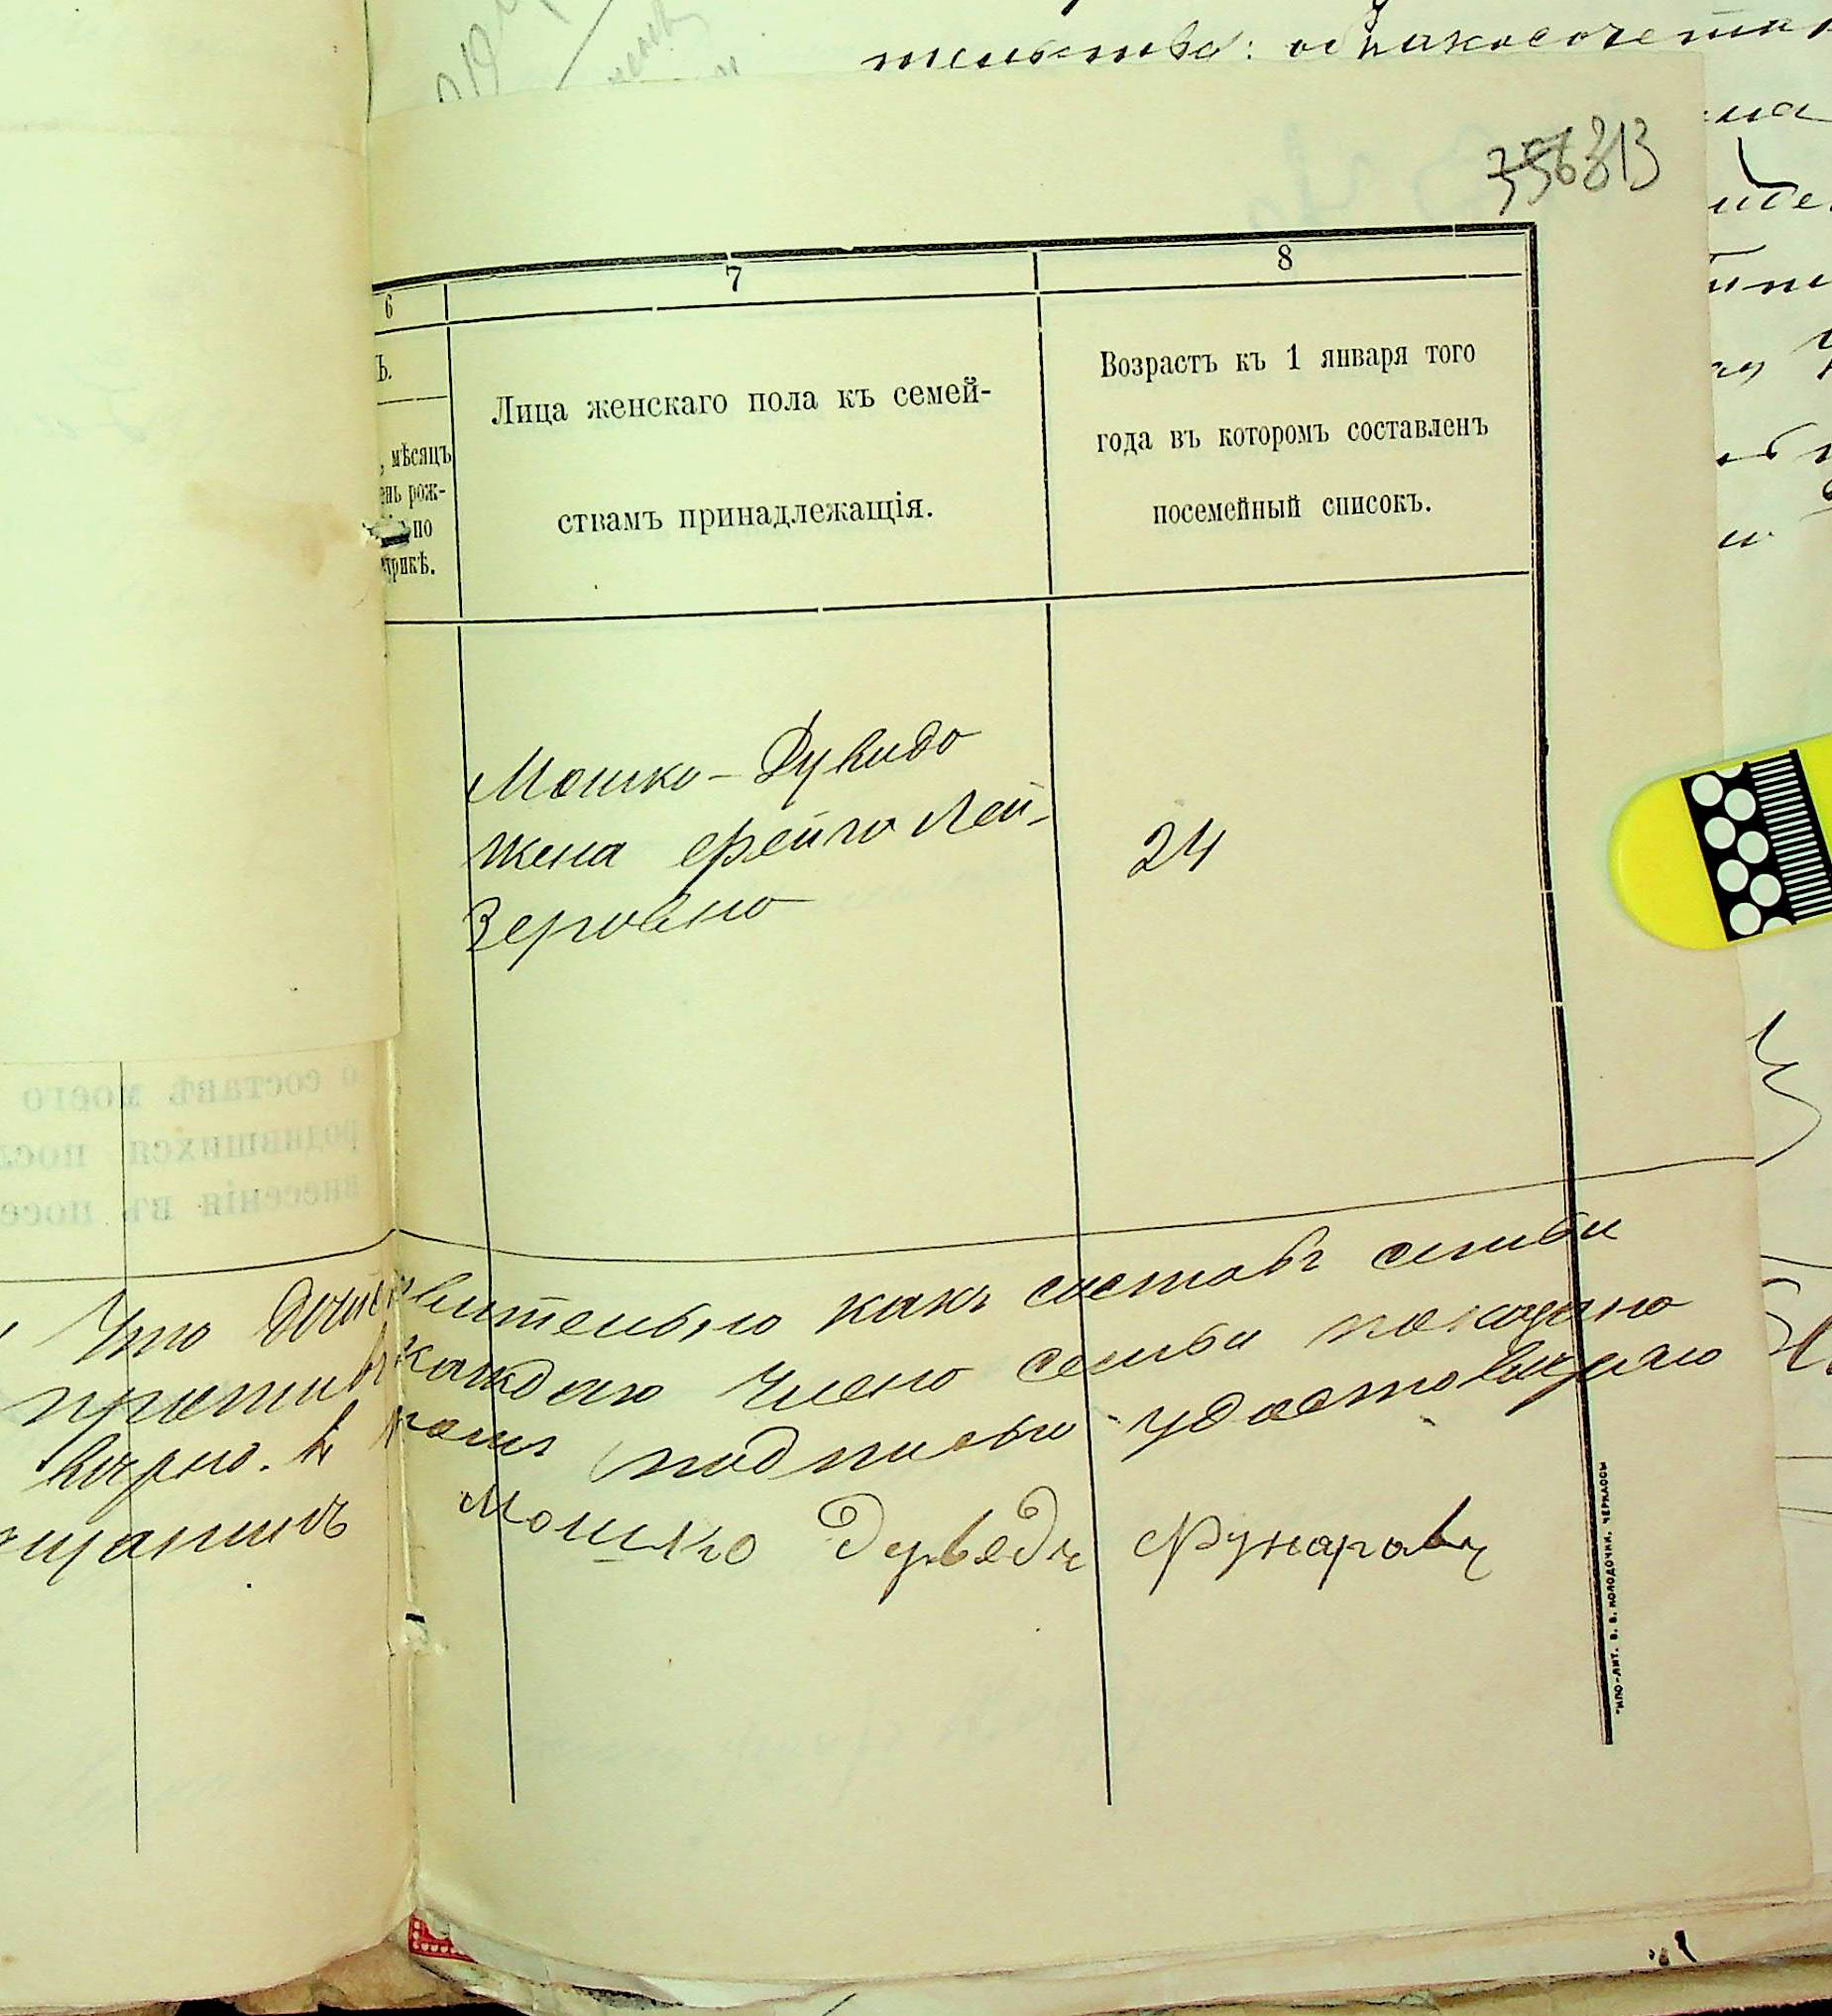 тельства: о бракосочетан
813
6
7
8
ъ.
Лица женскаго пола къ семей-
ствамъ принадлежащія.
Возрастъ къ 1 января того
года въ которомъ составленъ
посемейный списокъ.
, мѣсяцъ
ень рож-
по
етрикѣ.
Мошка-Дувида
жена Фейга Лей-
зеровна
24
о составѣ моего
родившихся посл
внесенія въ посе
Что действительно какъ составъ семьи
противъ каждаго члена семьи показано
вѣрно. въ томъ подписью удостовѣряю
щанинъ Мошко Дуведъ Фунаровъ
ИПО-ЛИТ. В. В. КОЛОДОЧКИ, ЧЕРКАССЫ